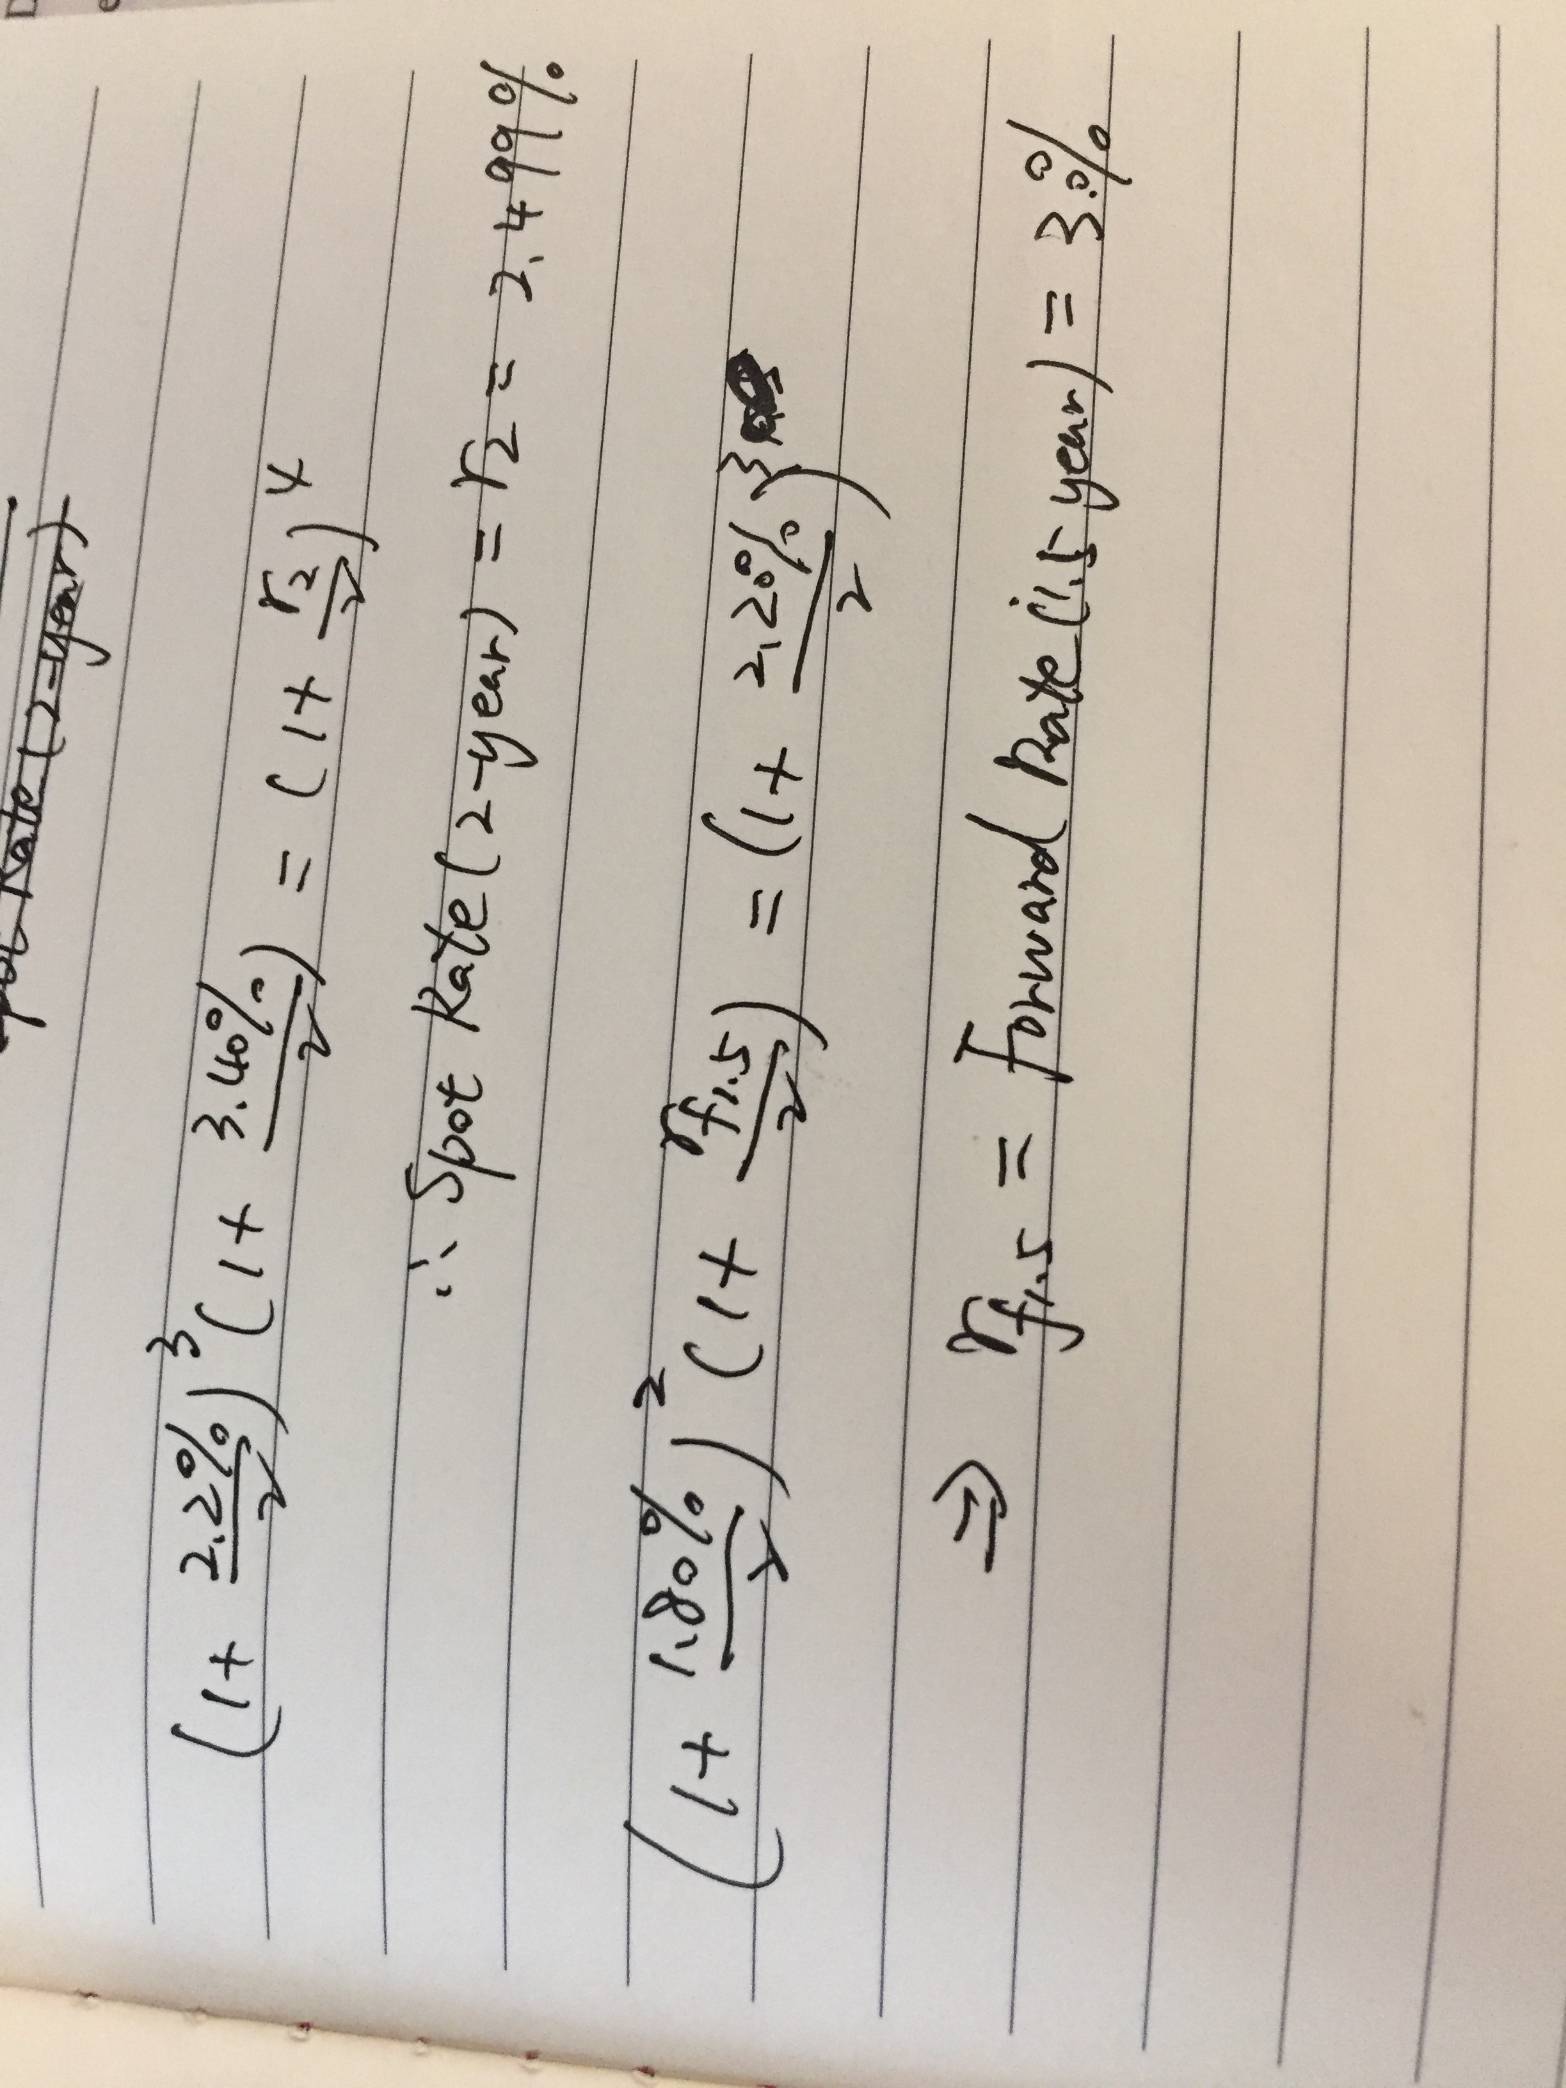 Rate (2-year)
(1+ 2.2%/2)³ (1+ 3.40%/2) = (1+ r₂/2)⁴
∴ Spot Rate (2-year) = r₂ = 2.499%
(1+ 1.80%/2)² (1+ rf1.5/2) = (1+ 2.20%/2)³
⇒ rf1.5 = Forward Rate (1.5 year) = 3.%